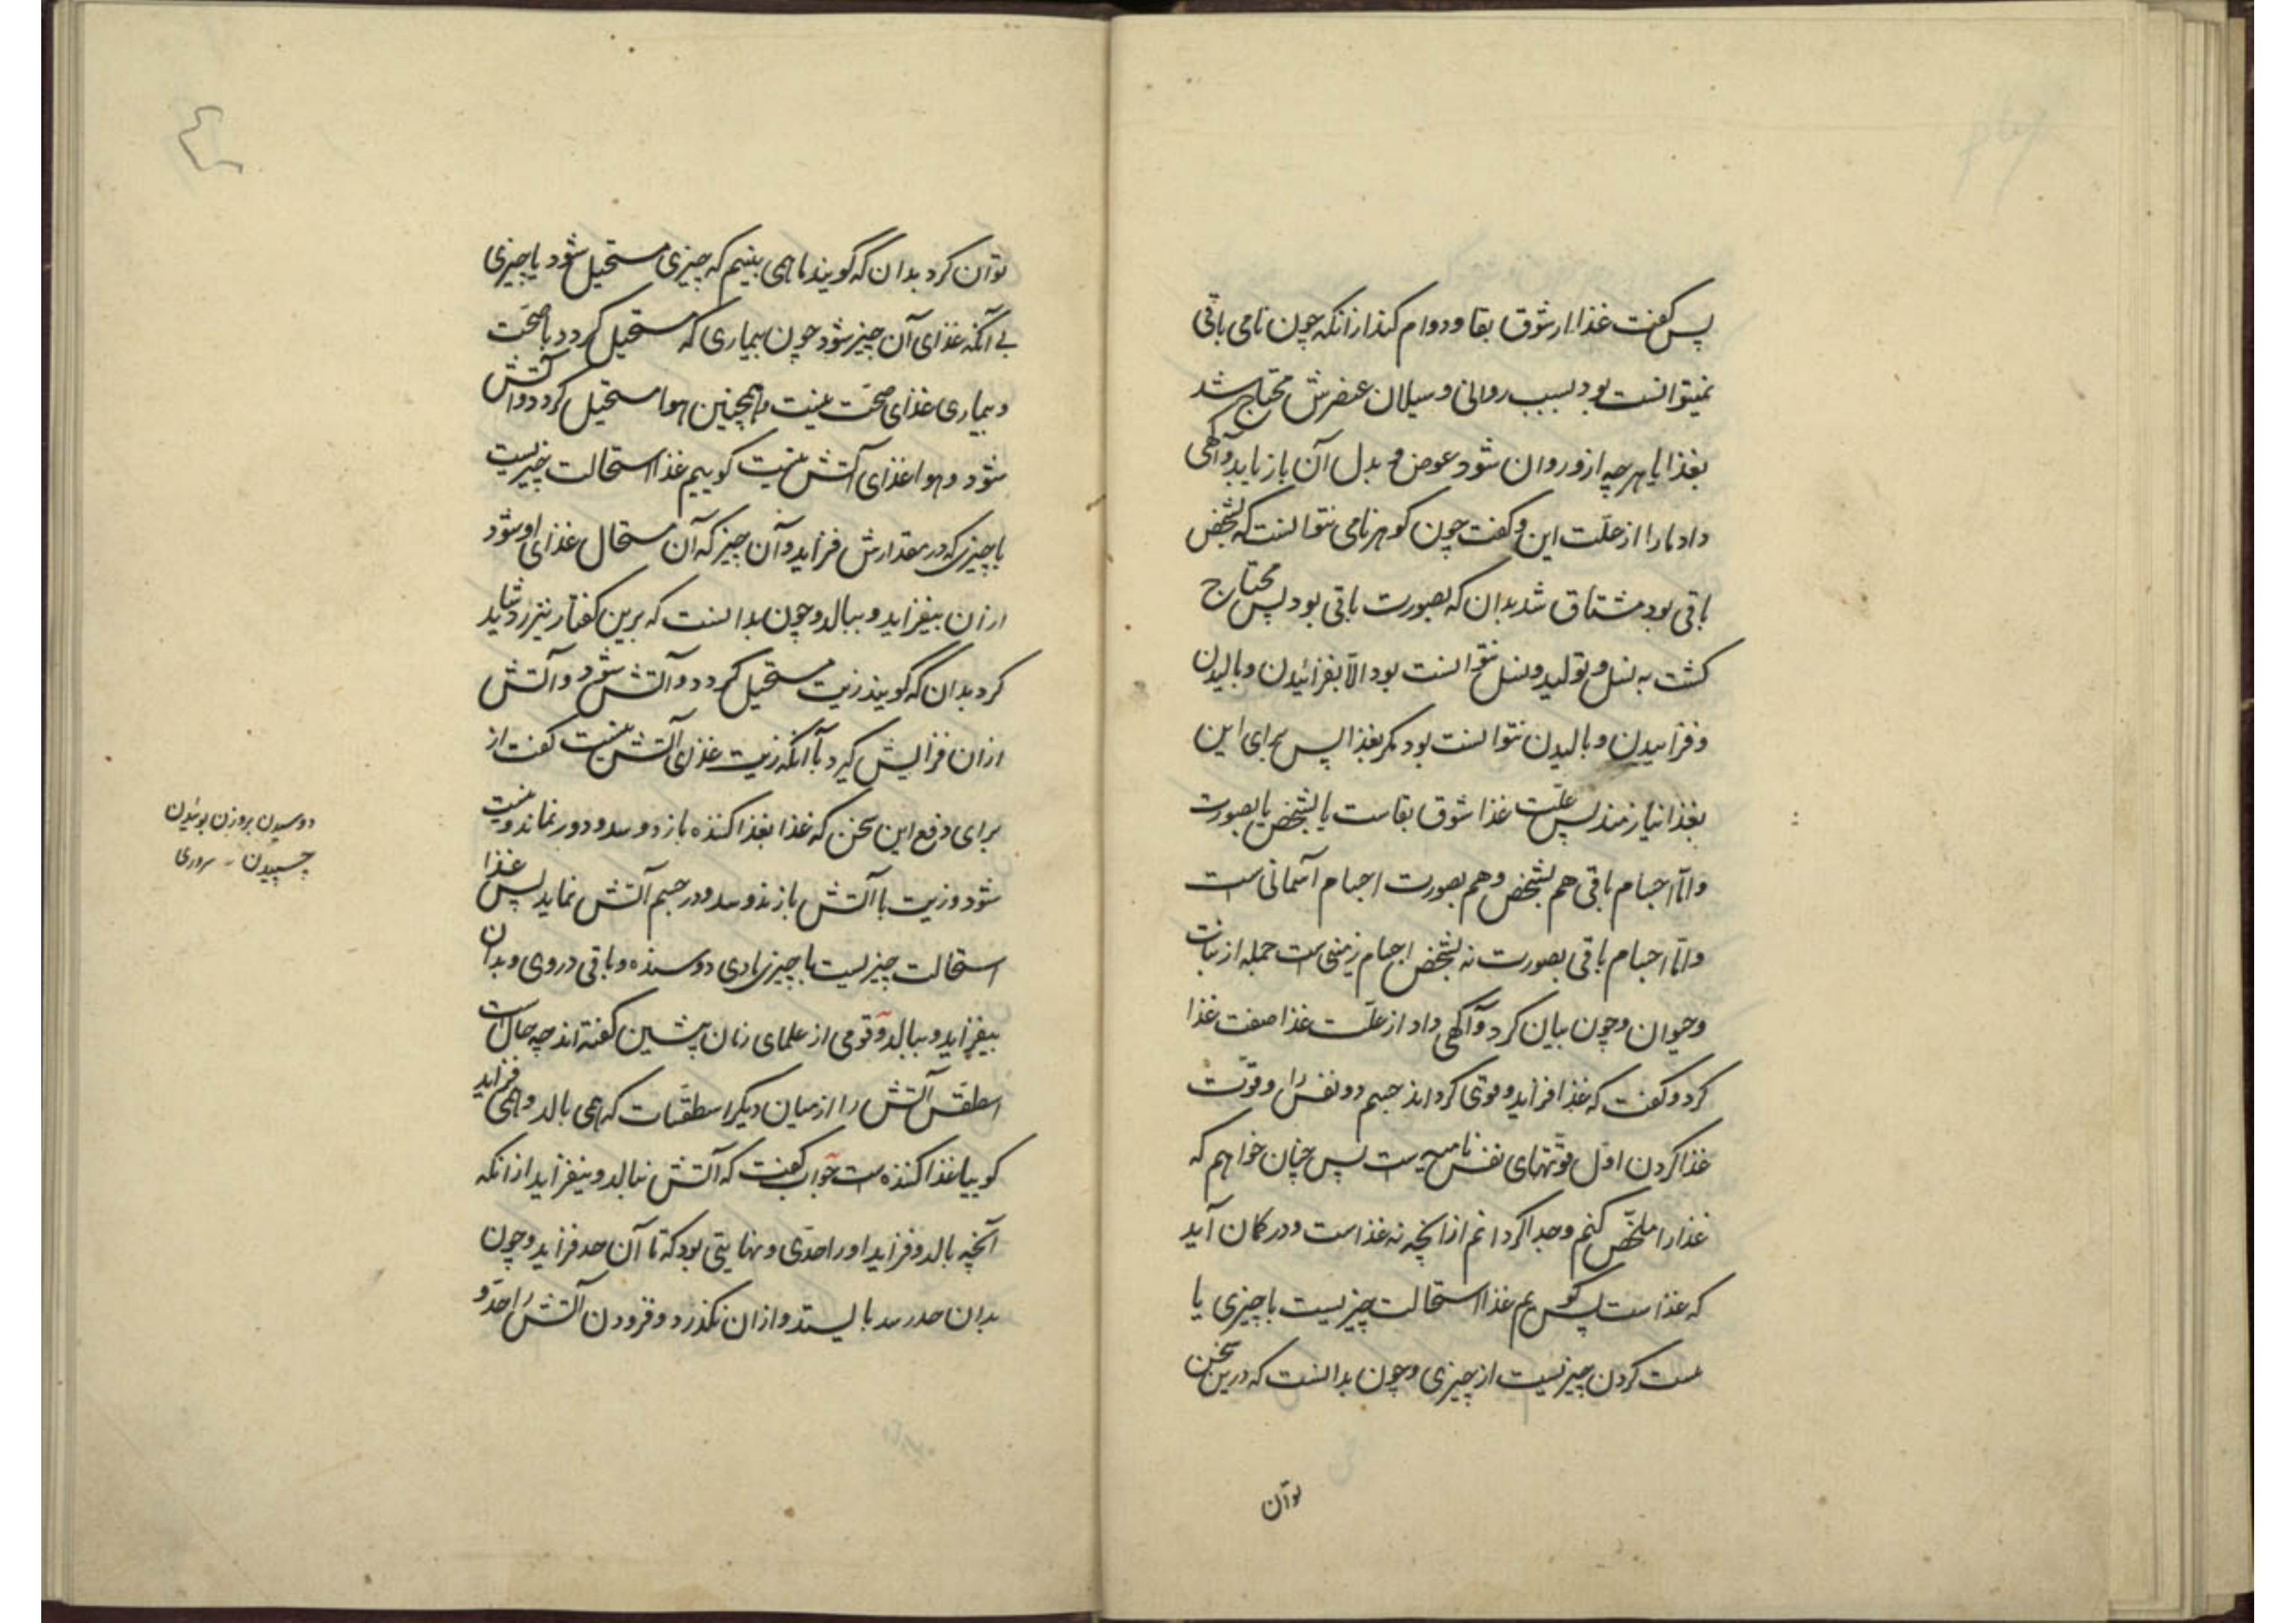 پس گفت غذا از شوق بقا و دوام کند از آنکه چون نامی باقی
نمیتوانست بود بسبب روانی و سیلان عنصرش محتاج شد
بغذا یا هرچه ازو روان شود عوض و بدل آن باز یابد و آگهی
داد ما را از علّت این و گفت چون گوهر نامی نتوانست که بشخص
باقی بود مشتاق شد بدان که بصورت باقی بود پس محتاج
گشت به نسل و تولید و نسل نتوانست بود الّا بفزائیدن و بالیدن
و فزاییدن و بالیدن نتوانست بود مگر بغذا پس برای این
بغذا نیازمند پس علّت غذا شوق بقاست یا بشخص یا بصورت
و امّا اجسام باقی هم بشخص و هم بصورت اجسام آسمانی است
و امّا اجسام باقی بصورت نه بشخص اجسام زمینی است جمله از نبات
و حیوان و چون بیان کرد و آگهی داد از علّت غذا صفت غذا
کرد و گفت که غذا فزاید و قوی گرداند جسم ذو نفس را و قوّت
غذا کردن اوّل قوّتهای نفس نامیه است پس چنان خواهم که
غذا را ملخّص کنم و جدا گردانم از آنچه نه غذاست و در گمان آید
که غذاست پس گویم غذا استحالت چیزیست با چیزی یا
هست کردن چیزیست از چیزی و چون بدانست که درین سخن
توان
توان کرد بدان که گویند ما همی بینیم که چیزی مستحیل شود با چیزی
بی آنکه غذای آن چیز شود چون بیماری که مستحیل گردد با صحّت
و بیماری غذای صحّت نیست و همچنین هوا مستحیل گردد و آتش
شود و هوا غذای آتش نیست گوییم غذا استحالت چیزیست
با چیزی که در مقدارش فزاید و آن چیز که آن مستحال غذای او شود
از آن بیفزاید و ببالد و چون بدانست که برین گفتار نیز رد شاید
کرد بدان که گویند زیت مستحیل گردد و آتش شود و آتش
از آن فزایش گیرد با آنکه زیت غذای آتش نیست گفت از
برای دفع این سخن که غذا بغذا کننده باز دوسد و دور نماند و نیست
شود و زیت با آتش باز ندوسد و در جسم آتش نماید پس غذا
استحالت چیزیست با چیزی مادی دوسنده و باقی در وی و بدان
بیفزاید و ببالد و قومی از علمای زمان پیشین گفته اند چه حال است
اسطقس آتش را از میان دیگر اسطقسات که همی بالد و همی فزاید
گوییا غذا کننده ست جواب گفت که آتش نبالد و نیفزاید از آنکه
آنچه بالد و فزاید او را حدّی و نهایتی بود که تا آن حد فزاید و چون
بدان حد رسد بایستد و از آن نگذرد و فزودن آتش را حدّ و
دوسیدن بروزن بوئیدن
چسپیدن - سروری